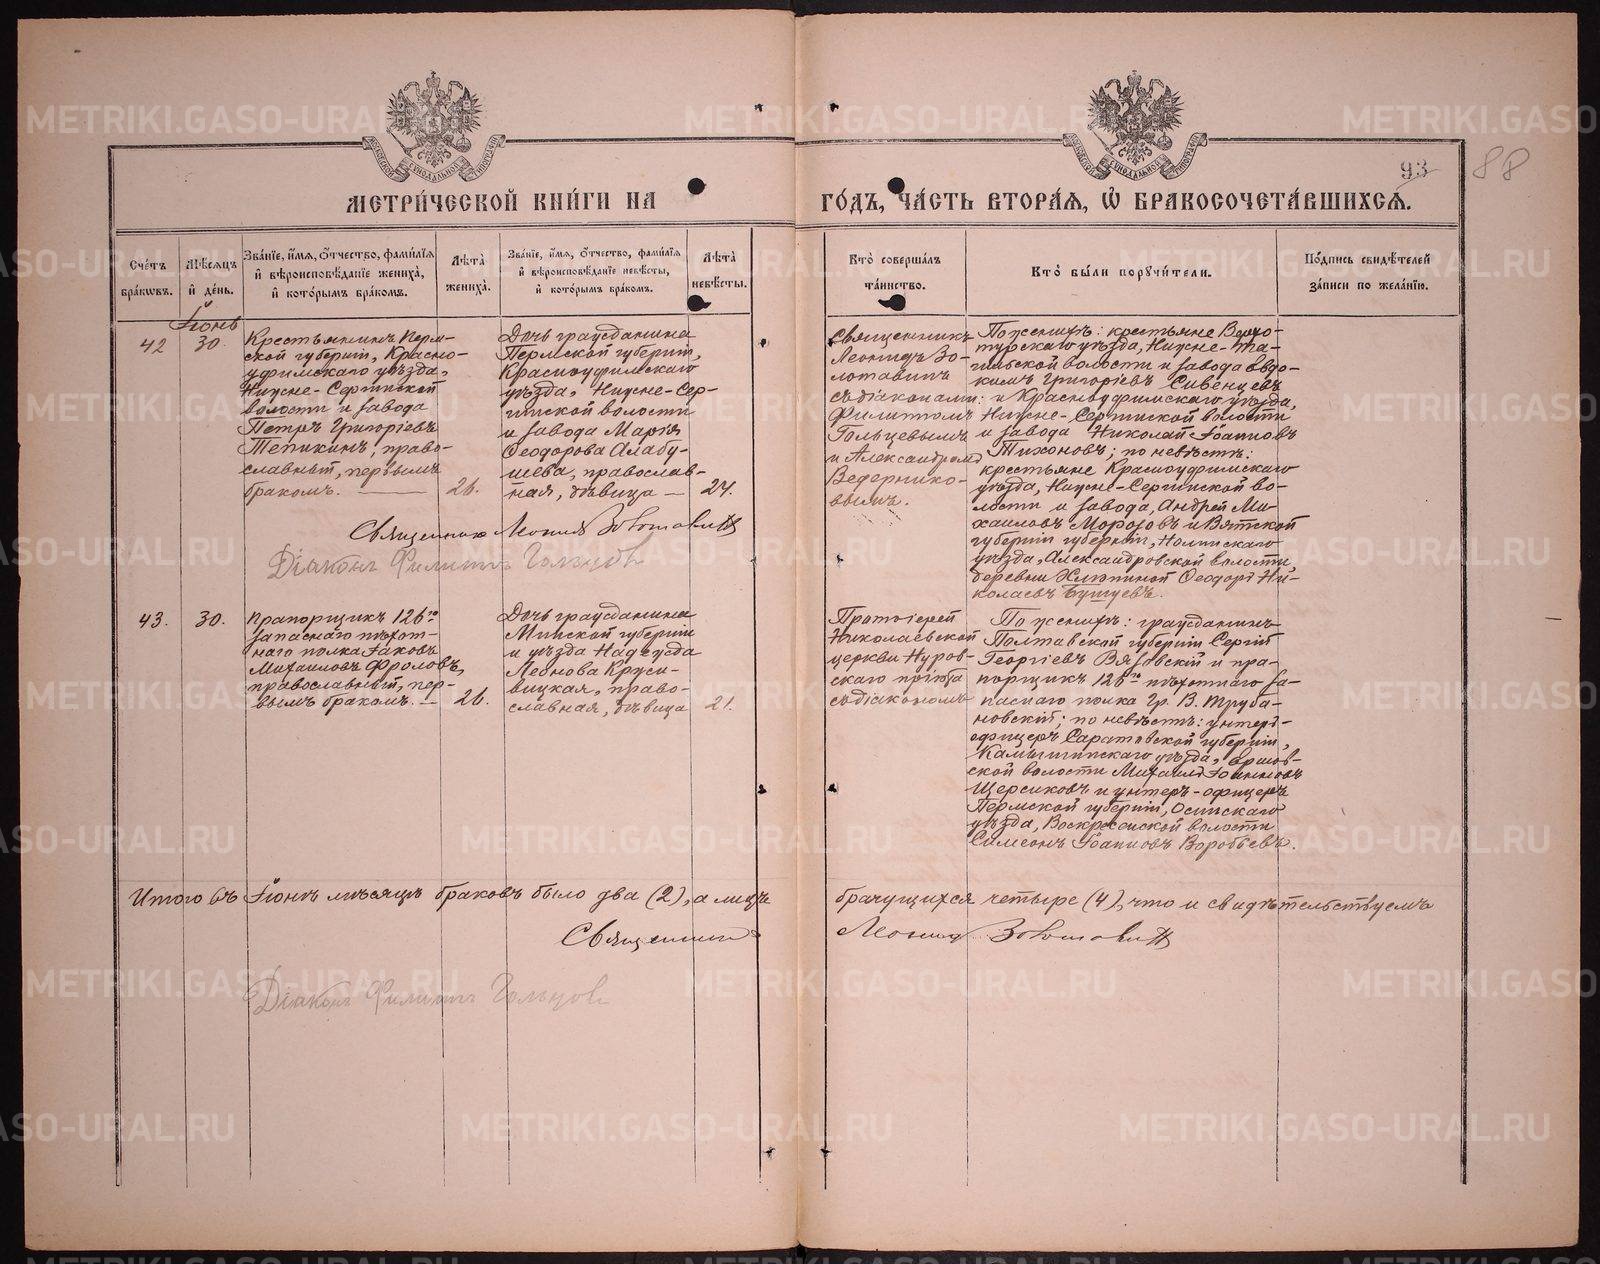 93
88
МЕТРИ́ЧЕСКОЙ КНИ́ГИ НА
ГО́ДЪ, ЧА́СТЬ ВТОРА́Я, Ѡ БРАКОСОЧЕТА́ВШИХСЯ.
Сче́тъ бра́кѡвъ.
Мѣ́сяцъ и де́нь.
Зва́нїе, и́мя, о́тчество, фами́лїя и вѣроисповѣ́данїе жениха̀, и кото́рымъ бра́комъ.
Лѣта̀ жениха̀.
Зва́нїе, и́мя, о́тчество, фами́лїя и вѣроисповѣ́данїе невѣ́сты, и кото́рымъ бра́комъ.
Лѣта̀ невѣ́сты.
Кто̀ соверша́лъ та́инство.
Кто̀ бы́ли порꙋчи́тели.
По́дпись свидѣ́телей за́писи по жела́нїю.
Іюнь
42
30.
Крестьянинъ Перм-
ской губерніи, Красно-
уфимскаго уѣзда,
Нижне-Сергинской
волости и завода
Петръ Григоріевъ
Тепикинъ, право-
славный, первымъ
бракомъ.
26.
Дочь гражданина
Пермской губерніи,
Красноуфимскаго
уѣзда, Нижне-Сер-
гинской волости
и завода Марія
Ѳеодорова Алабу-
шева, православ-
ная, дѣвица
24.
Священникъ
Леонидъ Зо-
лотавинъ
съ діаконами:
Филиппомъ
Гольцевымъ
и Александромъ
Ведернико-
вымъ.
По женихѣ: крестьяне Верхо-
турскаго уѣзда, Нижне-Та-
гильской волости и завода Евдо-
кимъ Григоріевъ Сивенцевъ
и Красноуфимскаго уѣзда,
Нижне-Сергинской волости
и завода Николай Іоанновъ
Тихоновъ; по невѣстѣ:
крестьяне Красноуфимскаго
уѣзда, Нижне-Сергинской во-
лости и завода, Андрей Ми-
хаиловъ Морозовъ и Вятской
губерніи губерніи, Нолинскаго
уѣзда, Александровской волости,
деревни Хлюпиной Ѳеодоръ Ни-
колаевъ
Священникъ Леонид Золотавинъ
Діаконъ Филиппъ Гольцовъ
43.
30.
Прапорщикъ 126го
запаснаго пѣхот-
наго полка Іаковъ
Михаиловъ Фроловъ,
православный, пер-
вымъ бракомъ.
26.
Дочь гражданина
Минской губерніи
и уѣзда Надежда
Леонова Круси-
вицкая, право-
славная, дѣвица
21.
Протоіерей
Николаевской
церкви Нуров-
скаго пріюта
съ діакономъ
По женихѣ: гражданинъ
Полтавской губерніи Сергій
Георгіевъ Вязовскій и пра-
порщикъ 126го пѣхотнаго за-
паснаго полка Гр. В. Труба-
новскій; по невѣстѣ: унтеръ-
офицеръ Саратовской губерніи,
Камышинскаго уѣзда,
ской волости Михаилъ Іоанновъ
Щерсиковъ и унтеръ-офицеръ
Пермской губерніи, Осинскаго
уѣзда, Воскресенской волости
Симеонъ Іоанновъ Воробьевъ.
Итого въ Іюнѣ мѣсяцѣ браковъ было два (2), а лицъ
брачущихся четыре (4), что и свидѣтельствуемъ
Священникъ
Леонид Золотавинъ
Діаконъ Филиппъ Гольцовъ
METRIKI.GASO-URAL.RU